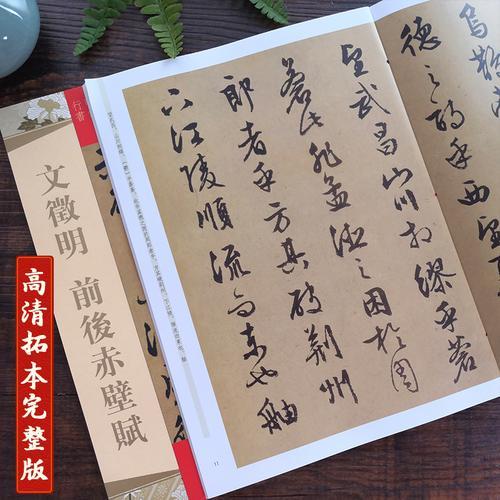 行書
文徵明 前後赤壁賦
高清拓本完整版
德之詩乎西望
望武昌山川相繆乎蒼
蒼此非孟德之困於周
郎者乎方其破荊州
下江陵順流而東也舳
11